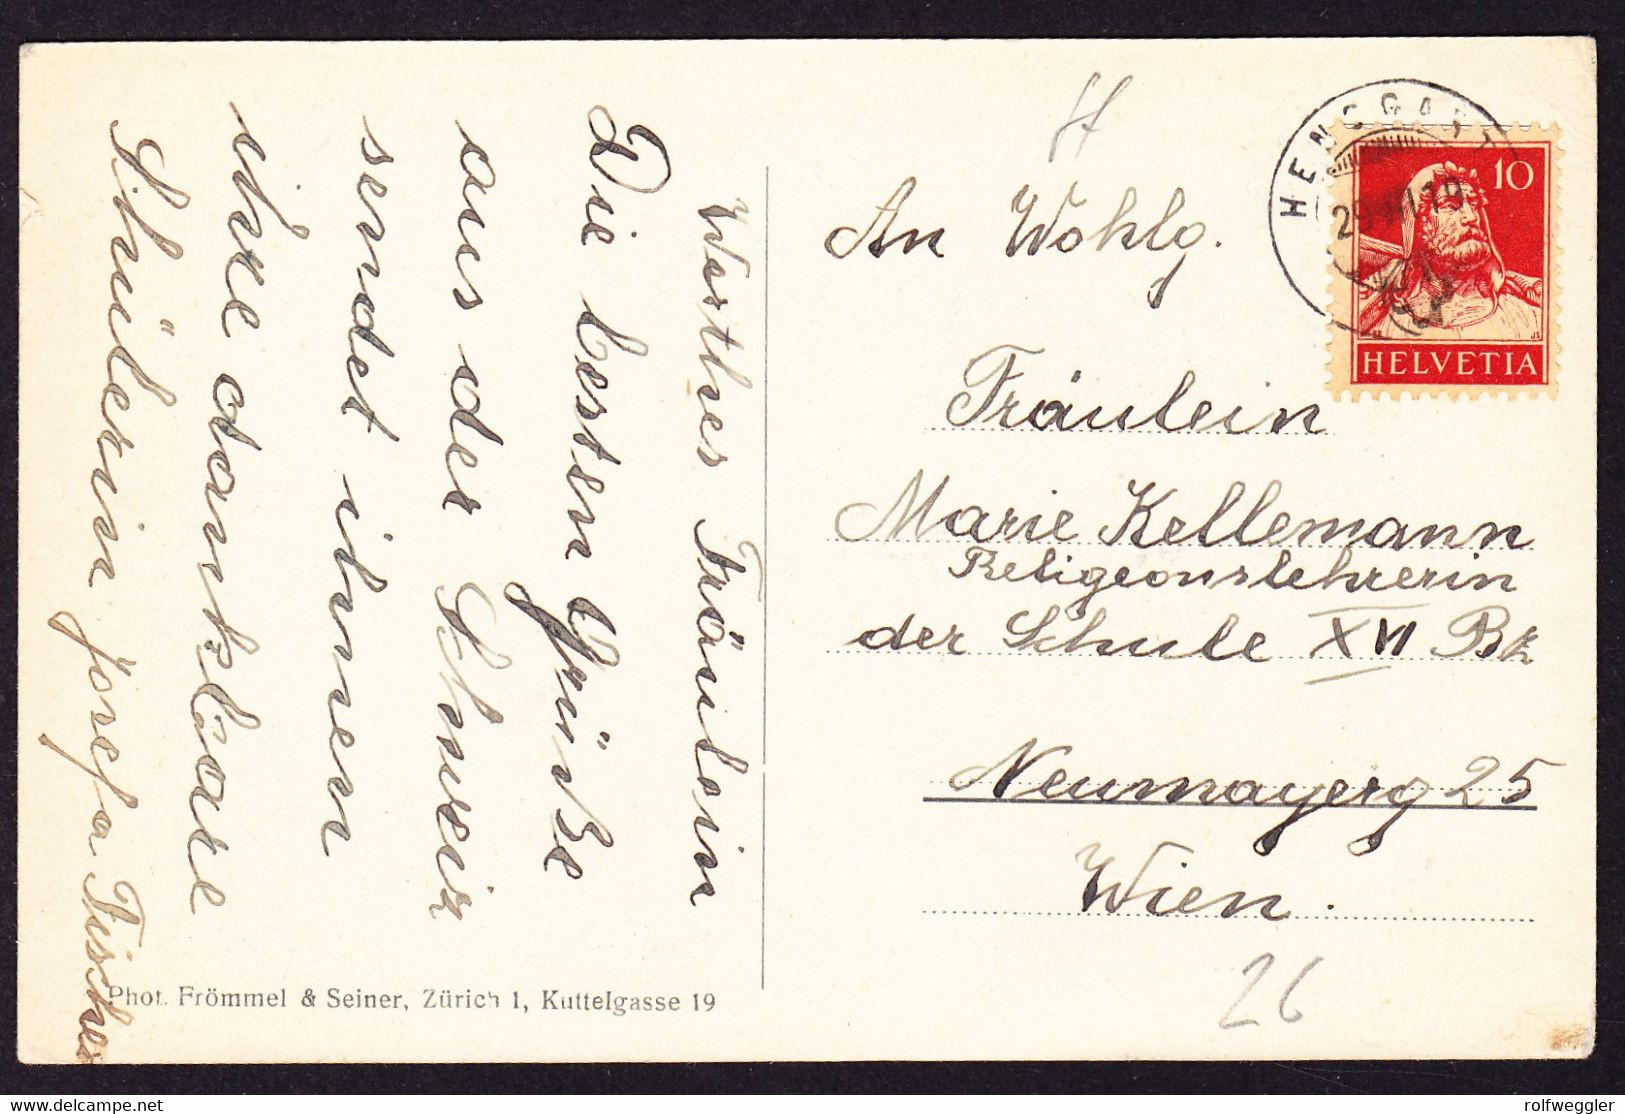 Werthes Fräulein
Die besten Grüße
aus der Schweiz
sendet ihnen
ihre dankbare
Schülerin Josefa Fischer
An Wohlg.
Fräulein
Marie Kellemann
Religeonslehrerin
der Schule XVI Bz
Neumayerg 25
Wien.
26
HENGGART
29. VII. 19
10
HELVETIA
Phot. Frömmel & Seiner, Zürich 1, Kuttelgasse 19
rolfweggler